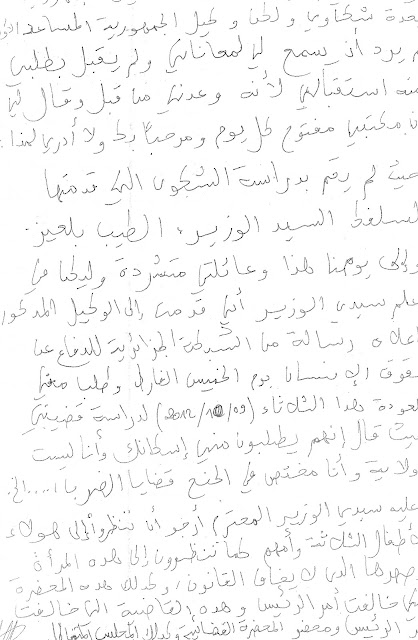 عدة شكاوي ولكن وكيل الجمهورية المساعد
لم يرد أن يسمع لي لمعاناتي ولم يقبل بطلبي
منه استقبالي لأنه وعدني من قبل وقال لي
أن مكتبي مفتوح كل يوم ومرحبا بك ولا أدري لماذا
حيث لم يقم بدراسة الشكوى التي قدمتها
لسلفك السيد الوزير، الطيب بلعيز
وإلى يومنا هذا وعائلتي متشردة وليكن في
علم سيدي الوزير أني قدمت إلى الوكيل المذكور
أعلاه رسالة من الشبكة الجزائرية للدفاع عن
حقوق الإنسان يوم الخميس الفارط وطلب مني
العودة هذا الثلاثاء (2012/10/09) لدراسة قضيتي
حيث قال إنهم يطلبون مني إسكانك وأنا ليست
ولاية وأنا مختص في الجنح قضايا الضرب.....الخ
وعليه سيدي الوزير المحترم أرجو أن تنظروا إلى هؤلاء
الأطفال الثلاثة وأمهم كما تنظرون إلى هذه المرأة
وصهرها الذي لا يخاف القانون، وكذلك هذه المحضرة
التي خالفت أمر الرئيس وهذه القاضية التي خالفت
الرئيس ومحضر المحضرة القضائي وكذلك المجلس